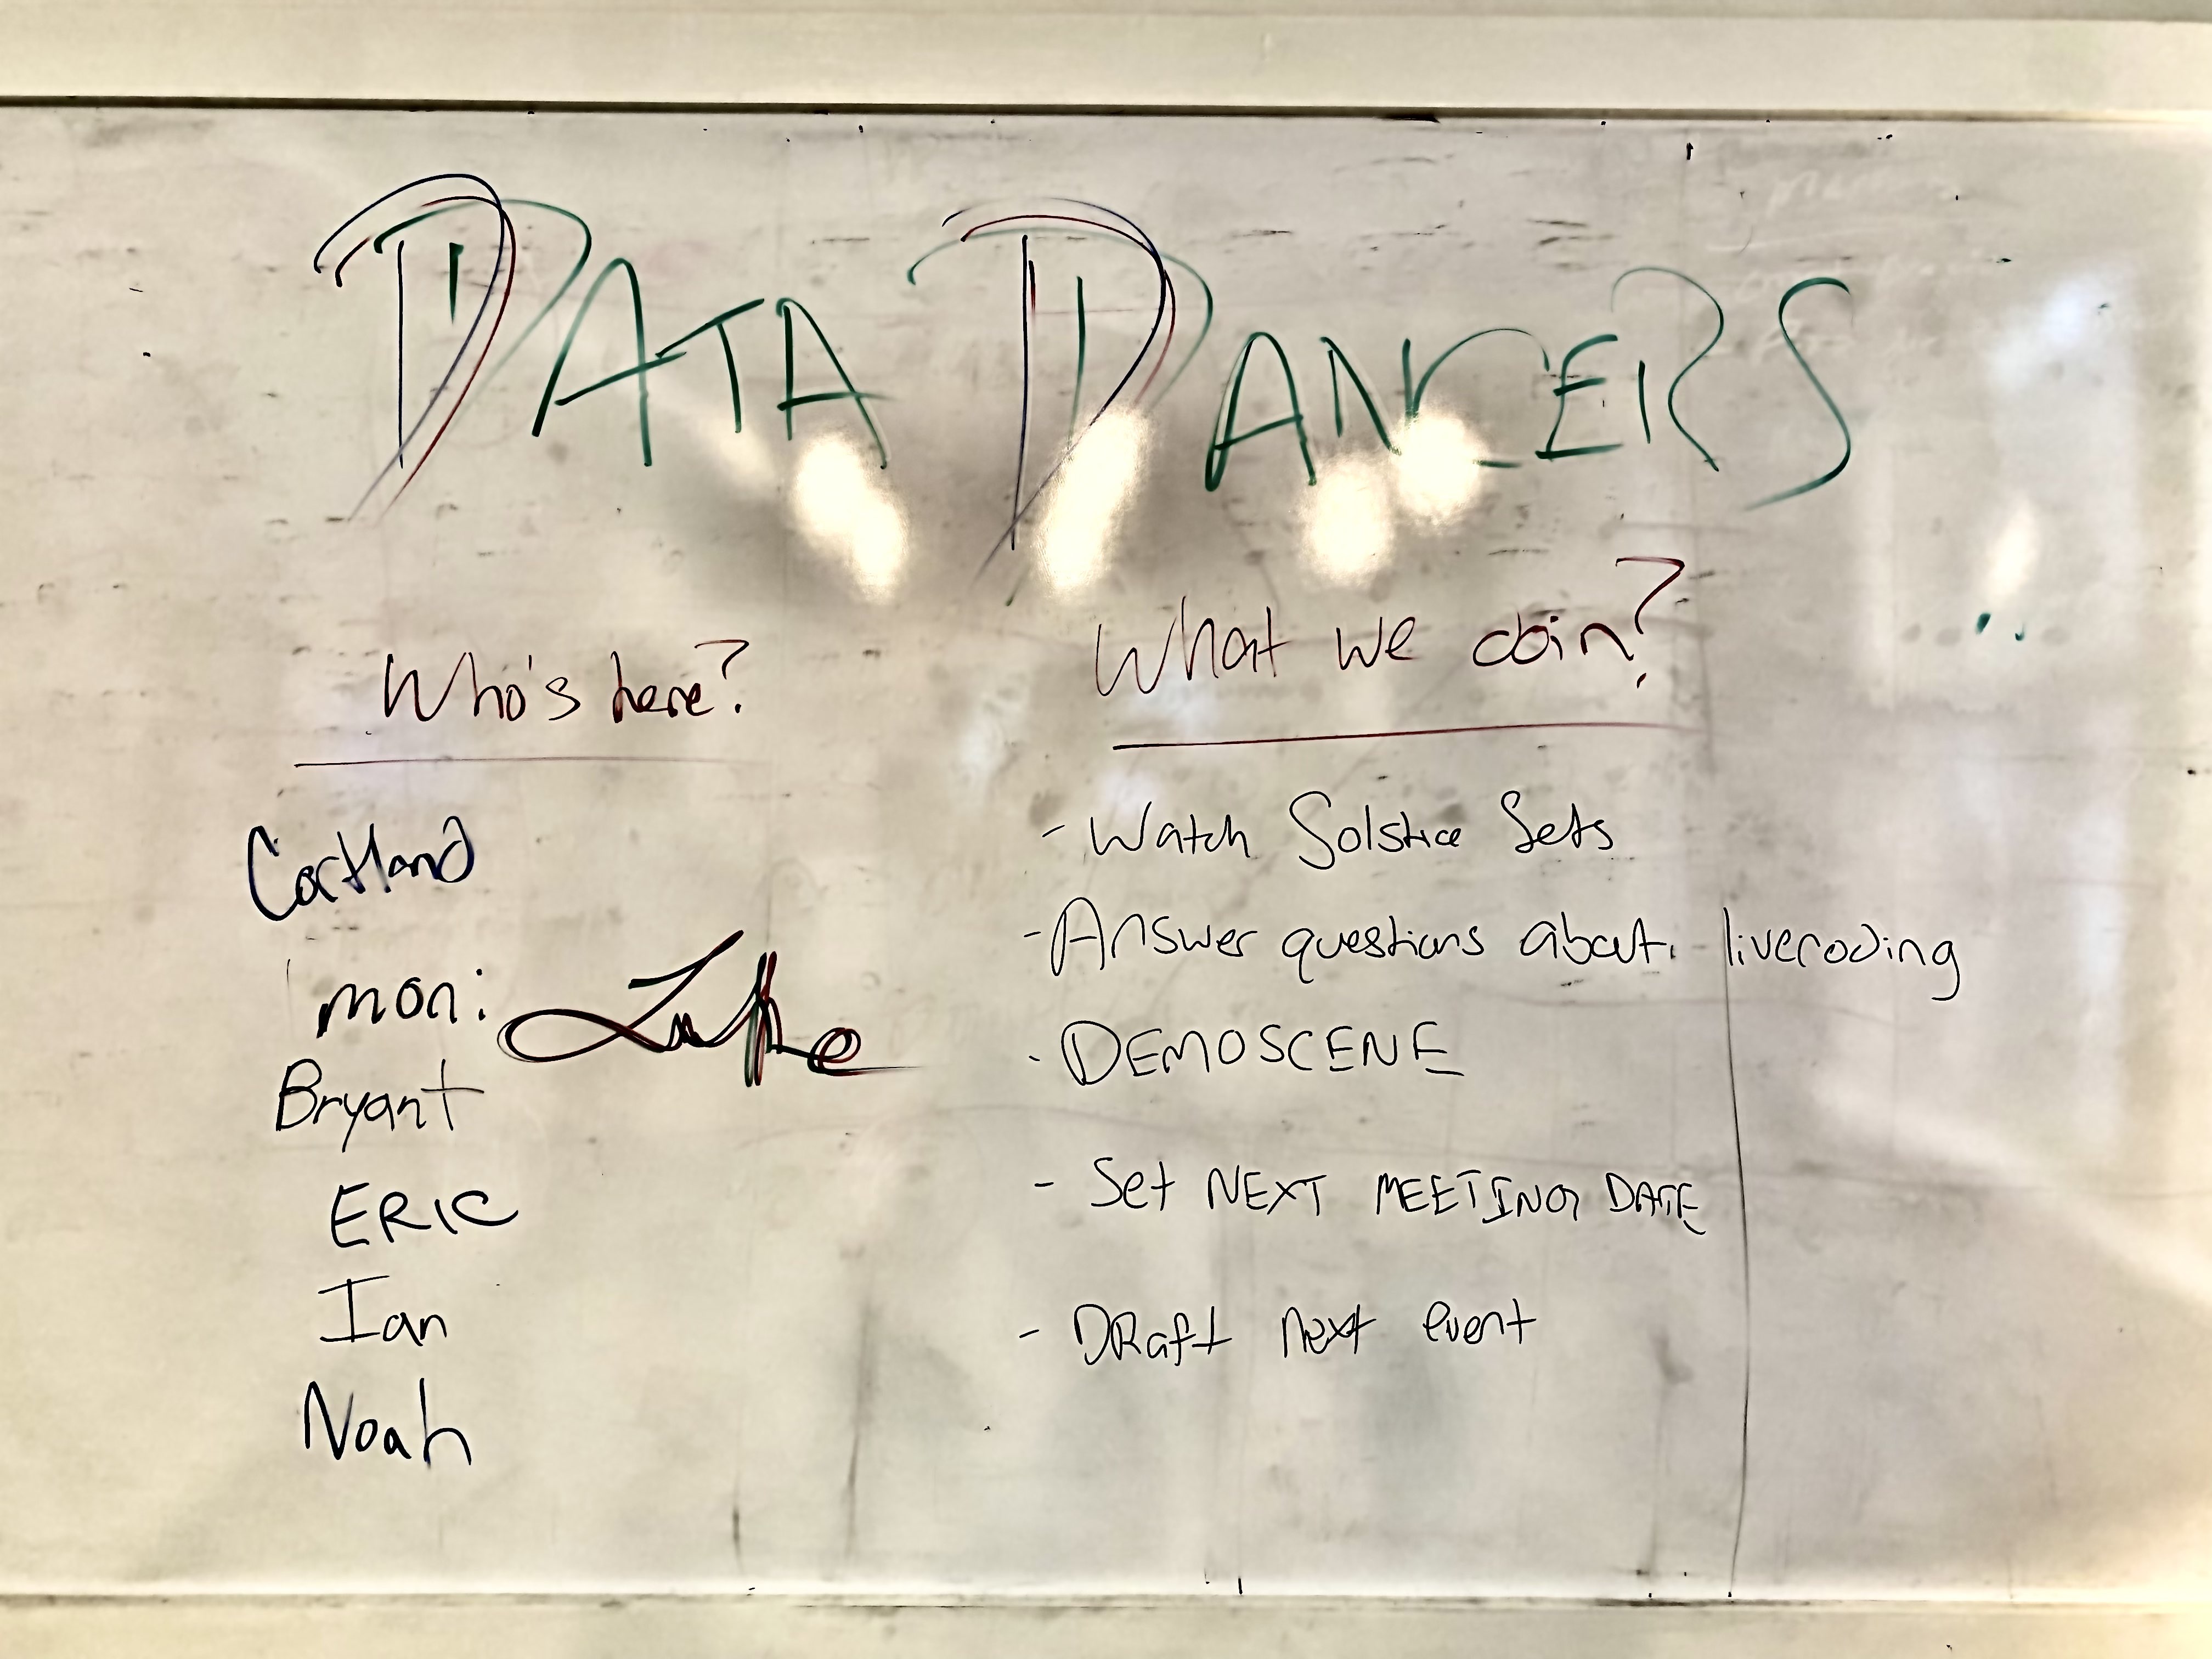 DATA DANCERS
Who's here?
Cortland
moni
Luke
Bryant
ERIC
Ian
Noah
What we doin?
- Watch Solstice Sets
- Answer questions about livecoding
- DEMOSCENE
- Set NEXT MEETING DATE
- DRaft next event